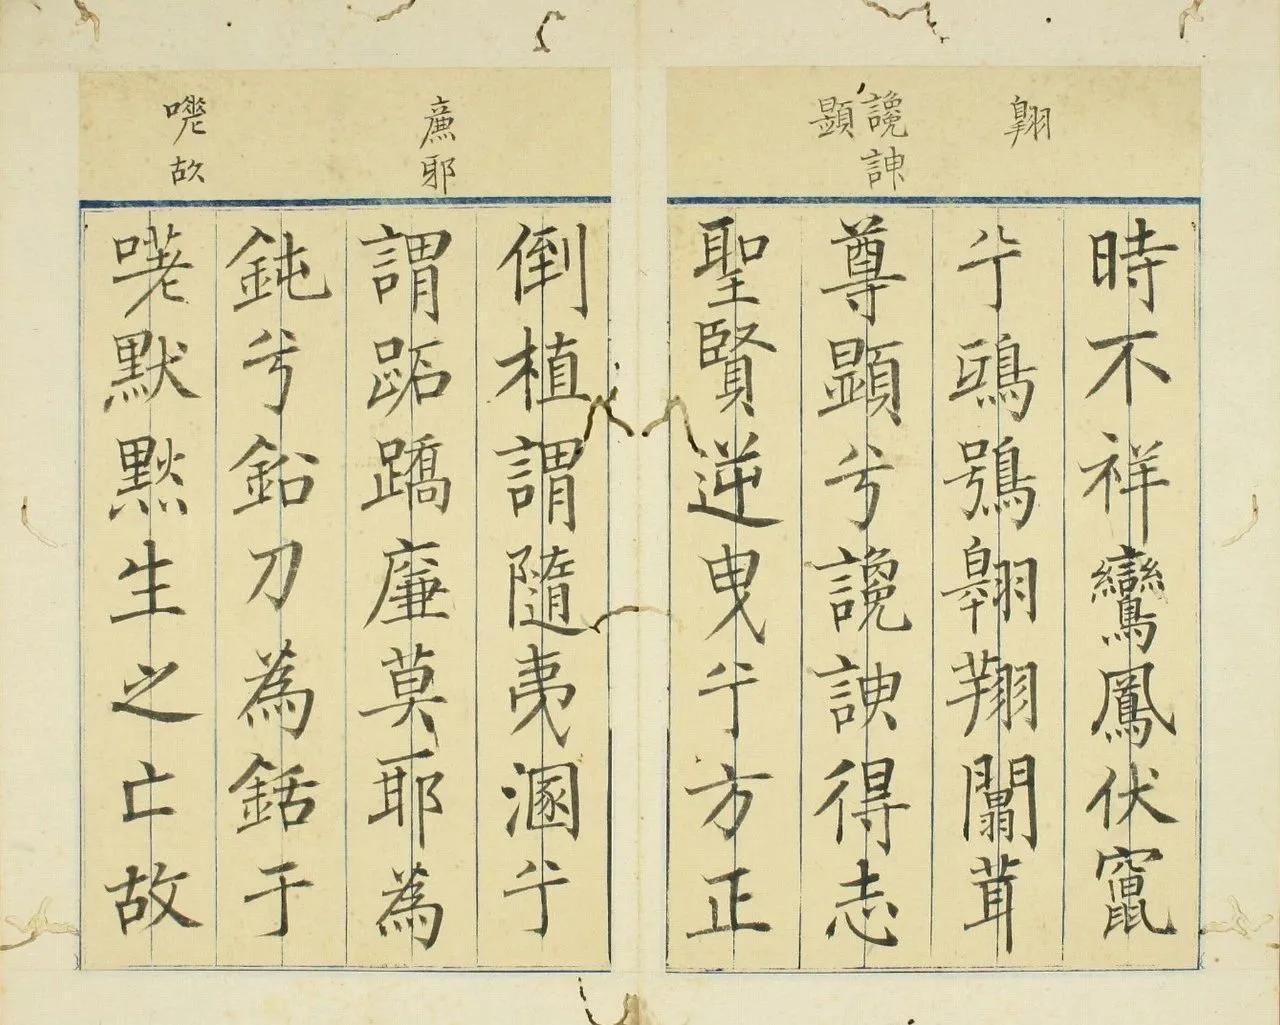 翱
讒諛
顯
時不祥鸞鳳伏竄
兮鴟鴞翱翔闒茸
尊顯兮讒諛得志
聖賢逆曳兮方正
廉邪
嗟故
倒植謂隨夷溷兮
謂跖蹻廉莫耶為
鈍兮鉛刀為銛于
嗟默默生之亡故